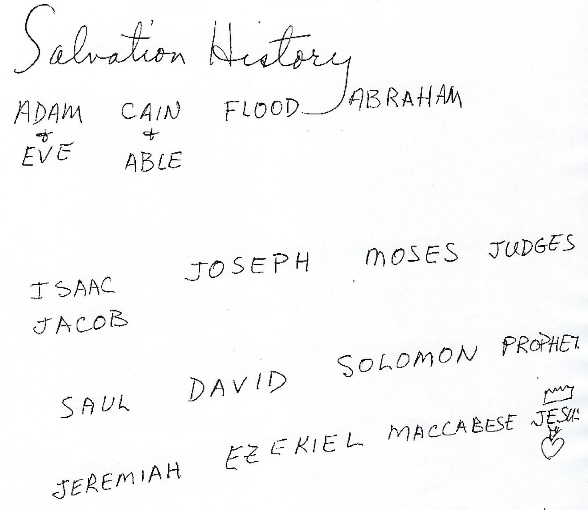 Salvation History
ADAM & EVE CAIN & ABLE FLOOD ABRAHAM
ISAAC JACOB JOSEPH MOSES JUDGES
SAUL DAVID SOLOMON PROPHET
JEREMIAH EZEKIEL MACCABESE JESUS